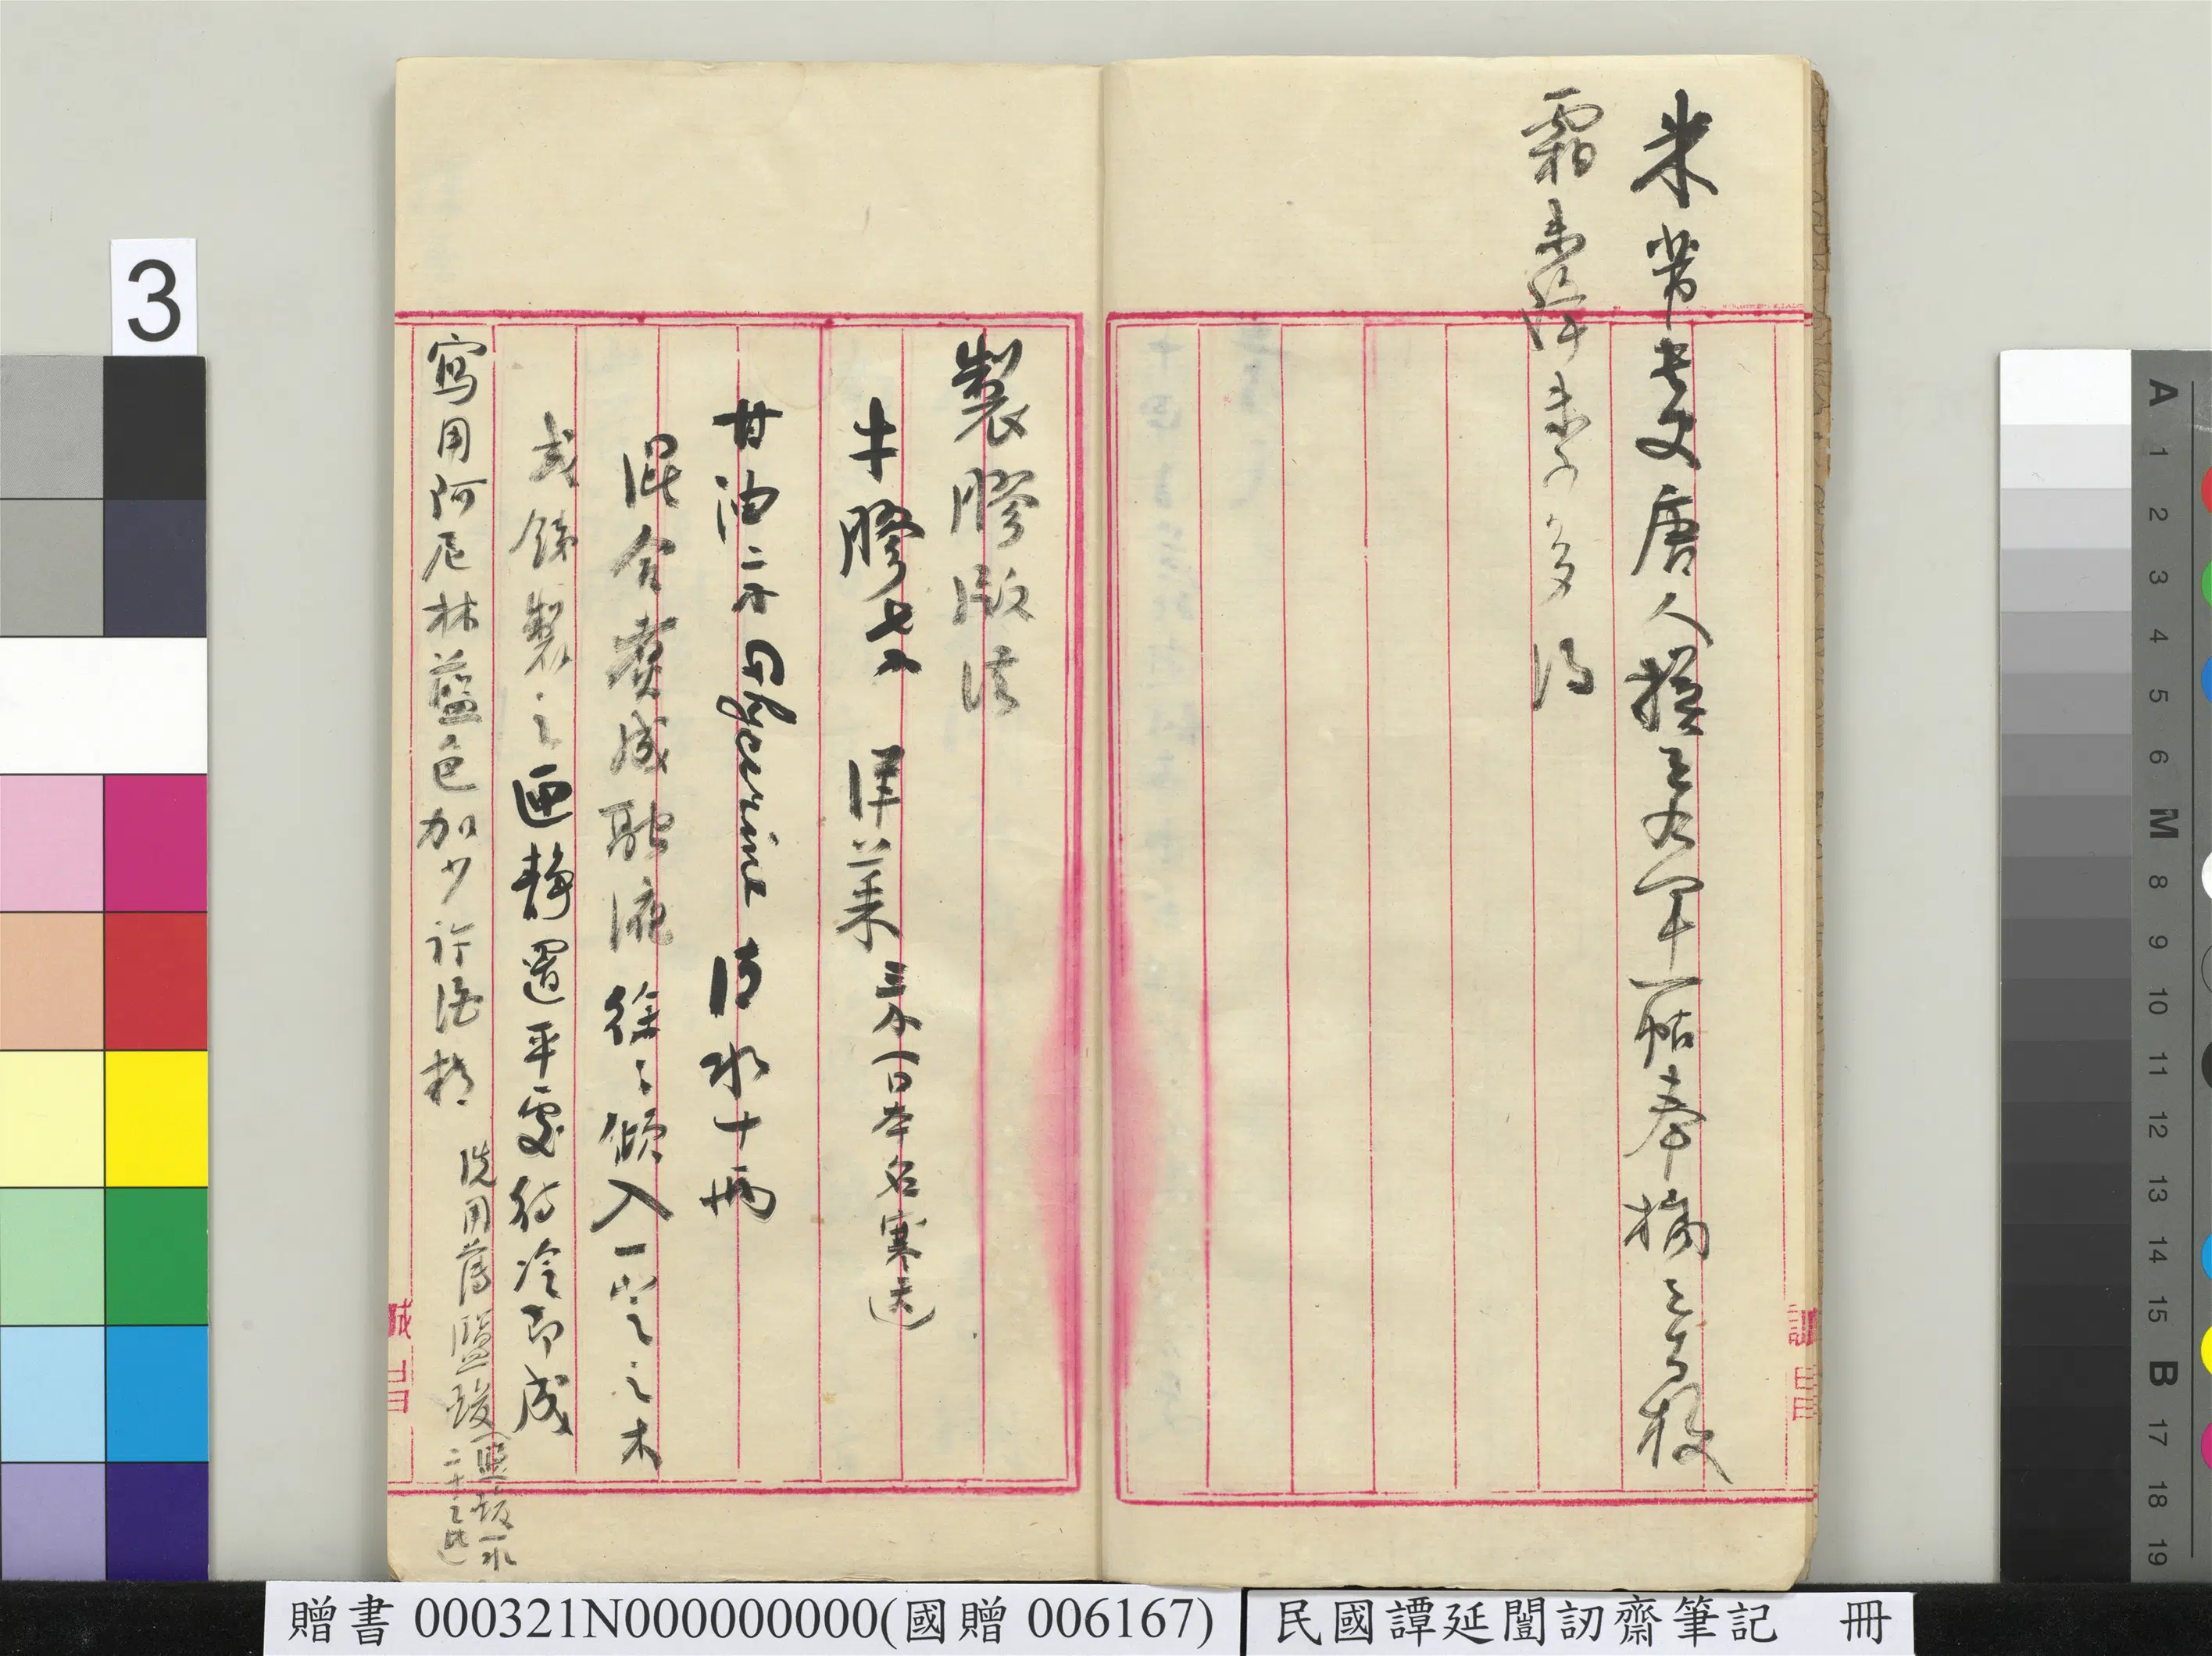 米芾書文唐人摹右軍一帖奉橘三百枚
霜未降未可多得
製膠版法
牛膠七 洋菜三 一日本名寒送
甘油二 Glycerine 清水十兩
混合煮成融液徐々傾入一 之木
或銕製之匣靜置平處待冷即成
寫用阿尼林藍色加少許酒精 洗用薄鹽酸(鹽酸一水
二十之比)
訓
3
A 1 2 3 4 5 6 M 8 9 10 11 12 13 14 15 B 17 18 19
贈書 000321N000000000(國贈 006167)
民國譚延闓訒齋筆記 冊